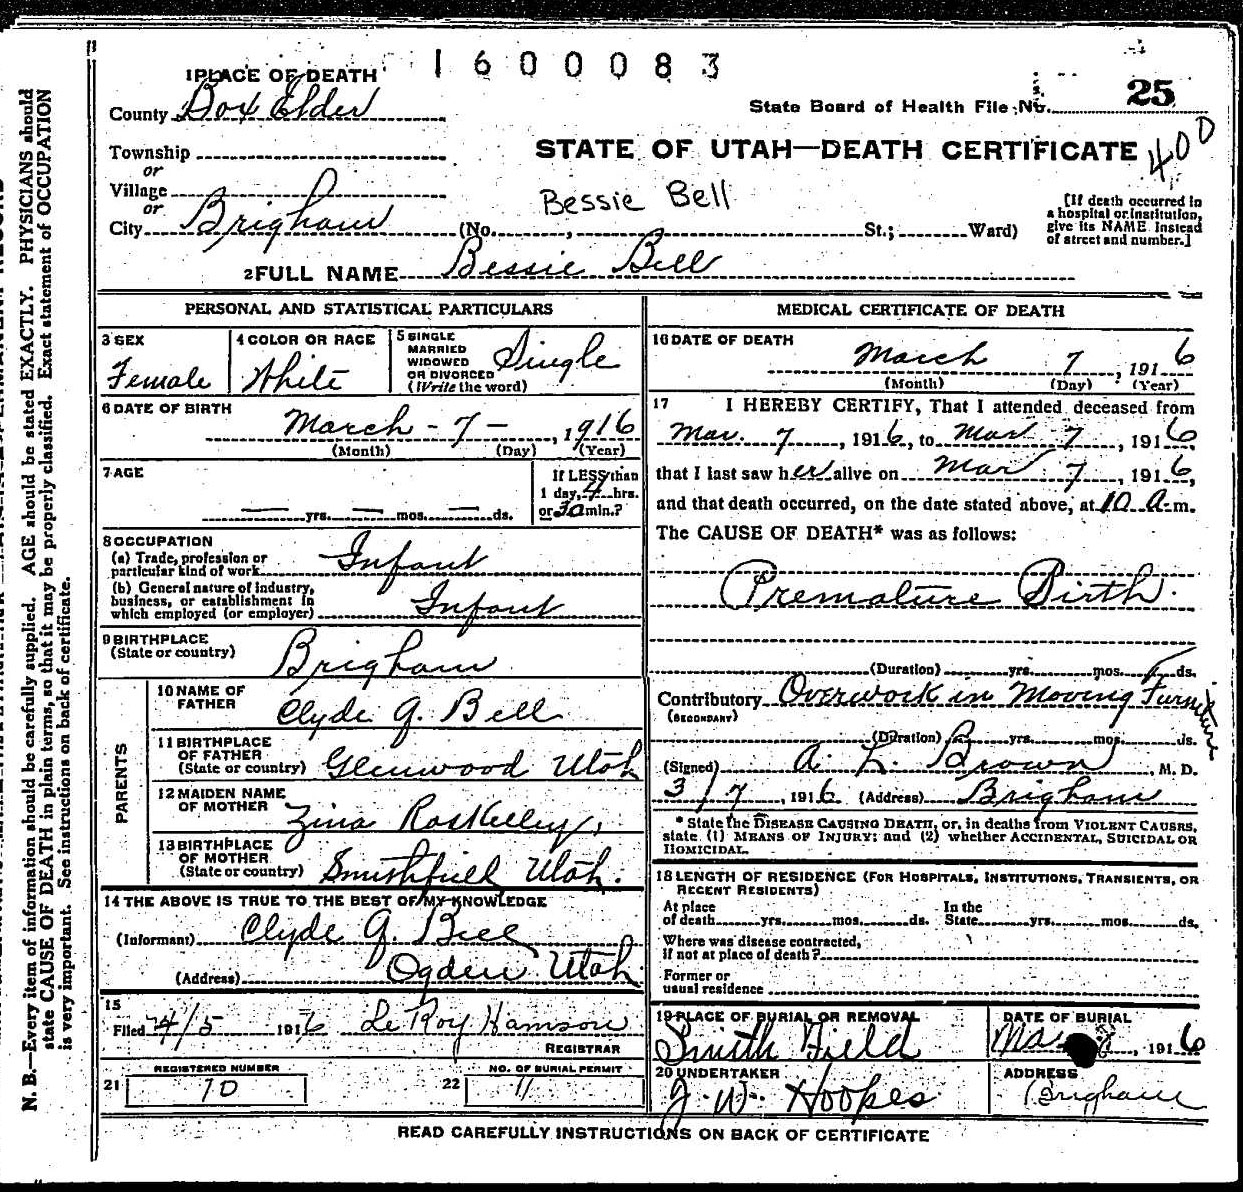 1600083
1 PLACE OF DEATH
County Box Elder
State Board of Health File No. 25
Township
STATE OF UTAH—DEATH CERTIFICATE
400
or
Village
Bessie Bell
or
City Brigham (No. , St.; Ward)
[If death occurred in
a hospital or institution,
give its NAME instead
of street and number.]
2 FULL NAME Bessie Bell
PERSONAL AND STATISTICAL PARTICULARS
3 SEX
Female
4 COLOR OR RACE
White
5 SINGLE
MARRIED
WIDOWED
OR DIVORCED
(Write the word)
Single
6 DATE OF BIRTH
March - 7 - , 1916
(Month) (Day) (Year)
7 AGE
— yrs. — mos. — ds.
If LESS than
1 day, 4 hrs.
or 30 min.?
8 OCCUPATION
(a) Trade, profession or
particular kind of work Infant
(b) General nature of industry,
business, or establishment in
which employed (or employer) Infant
9 BIRTHPLACE
(State or country) Brigham
PARENTS
10 NAME OF
FATHER Clyde G. Bell
11 BIRTHPLACE
OF FATHER
(State or country) Glenwood Utah
12 MAIDEN NAME
OF MOTHER Zina Roskelley
13 BIRTHPLACE
OF MOTHER
(State or country) Smithfield Utah.
14 THE ABOVE IS TRUE TO THE BEST OF MY KNOWLEDGE
(Informant) Clyde G. Bell
(Address) Ogden Utah
15
Filed 4/5 1916 LeRoy Hamson
REGISTRAR
REGISTERED NUMBER
21 10
NO. OF BURIAL PERMIT
22 11
MEDICAL CERTIFICATE OF DEATH
16 DATE OF DEATH
March 7, 1916
(Month) (Day) (Year)
17 I HEREBY CERTIFY, That I attended deceased from
Mar. 7, 1916, to Mar 7, 1916
that I last saw her alive on Mar 7, 1916,
and that death occurred, on the date stated above, at 10 A.m.
The CAUSE OF DEATH* was as follows:
Premature Birth.
(Duration) yrs. mos. ds.
Contributory Overwork in Moving Furniture
(SECONDARY)
(Duration) yrs. mos. ds.
(Signed) A. L. Brown, M. D.
3/7, 1916 (Address) Brigham
* State the DISEASE CAUSING DEATH, or, in deaths from VIOLENT CAUSES,
state (1) MEANS OF INJURY; and (2) whether ACCIDENTAL, SUICIDAL OR
HOMICIDAL.
18 LENGTH OF RESIDENCE (FOR HOSPITALS, INSTITUTIONS, TRANSIENTS, OR
RECENT RESIDENTS)
At place In the
of death yrs. mos. ds. State yrs. mos. ds.
Where was disease contracted,
if not at place of death?
Former or
usual residence
19 PLACE OF BURIAL OR REMOVAL
Smith Field
DATE OF BURIAL
Mar , 1916
20 UNDERTAKER
J. W. Hoopes
ADDRESS
Brigham
READ CAREFULLY INSTRUCTIONS ON BACK OF CERTIFICATE
N. B.—Every item of information should be carefully supplied. AGE should be stated EXACTLY. PHYSICIANS should
state CAUSE OF DEATH in plain terms, so that it may be properly classified. Exact statement of OCCUPATION
is very important. See instructions on back of certificate.